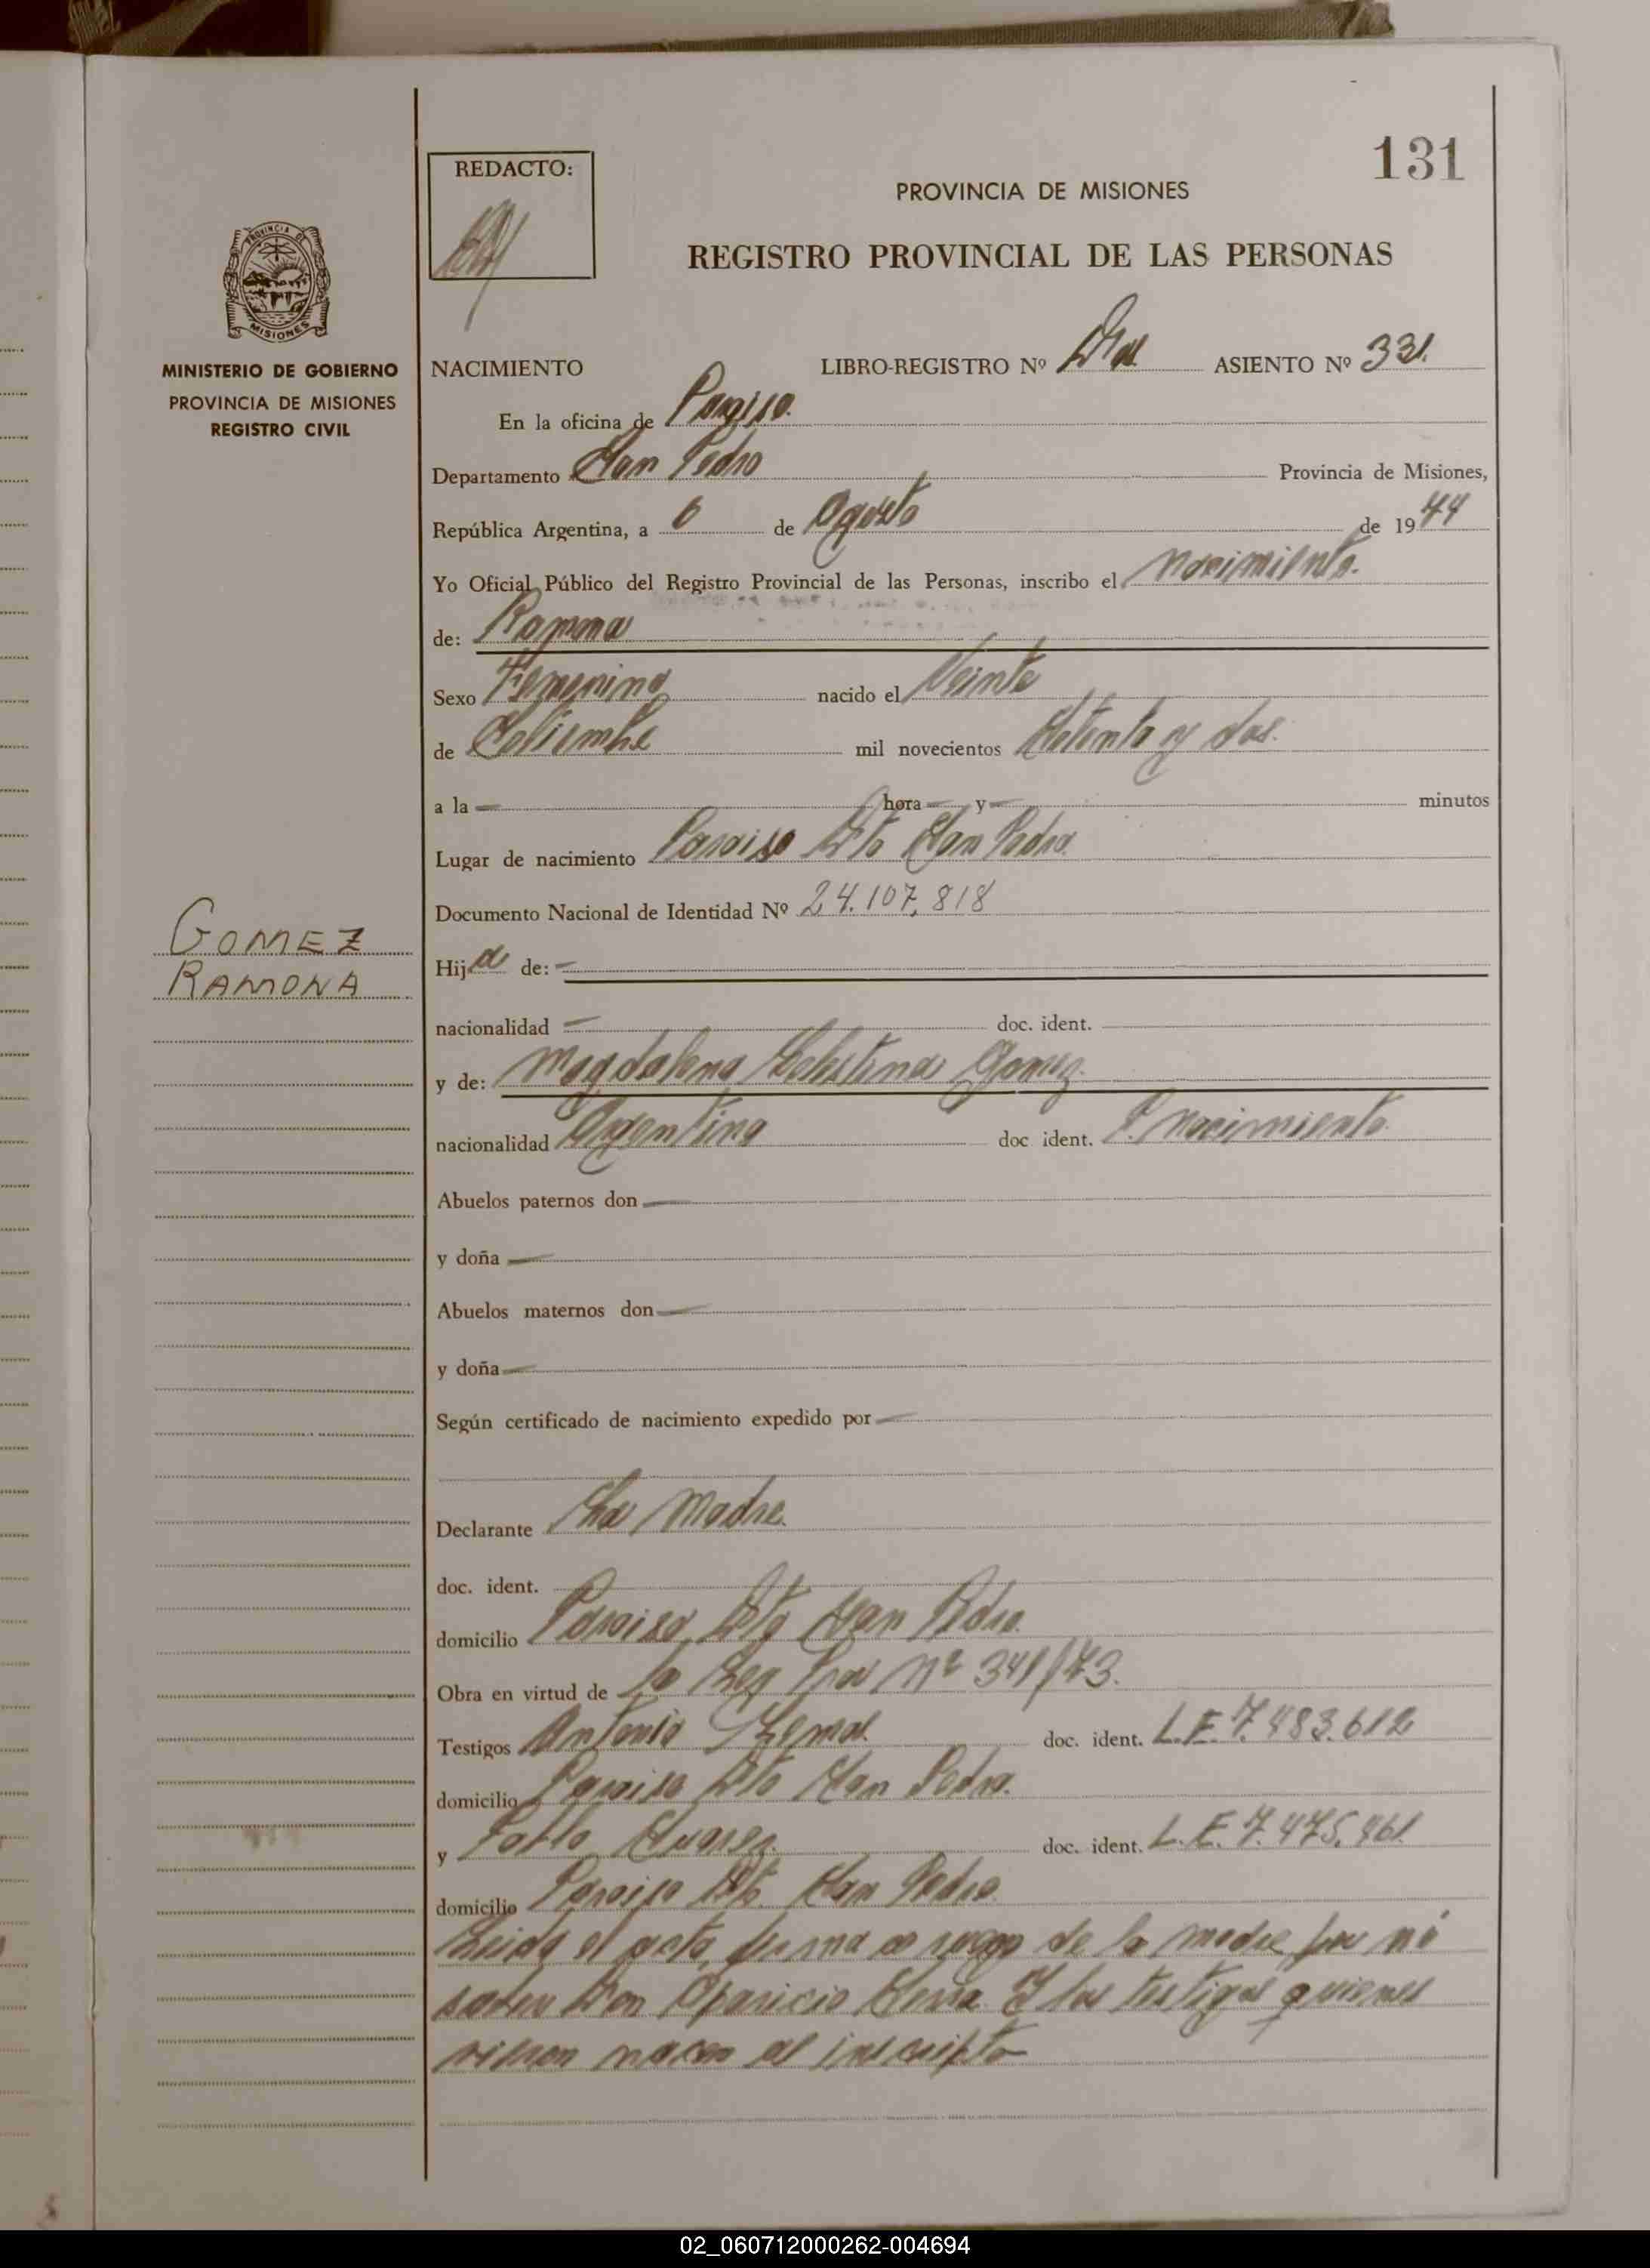 131
REDACTO:
PROVINCIA DE MISIONES
REGISTRO PROVINCIAL DE LAS PERSONAS
MISIONES
MINISTERIO DE GOBIERNO
PROVINCIA DE MISIONES
REGISTRO CIVIL
NACIMIENTO LIBRO-REGISTRO Nº Dos ASIENTO Nº 331.
En la oficina de Paraiso.
Departamento San Pedro Provincia de Misiones,
República Argentina, a 6 de Agosto de 19
Yo Oficial Público del Registro Provincial de las Personas, inscribo el nacimiento.
de: Ramona
Sexo Femenino nacido el Veinte
de mil novecientos Setenta y dos.
a la — hora — y — minutos
Lugar de nacimiento Paraiso Dto San Pedro.
Documento Nacional de Identidad Nº 24.107.818
GOMEZ
RAMONA
Hija de: —
nacionalidad — doc. ident.
y de: Magdalena Celestina Gomez.
nacionalidad Argentina doc ident. P. nacimiento.
Abuelos paternos don —
y doña —
Abuelos maternos don —
y doña —
Según certificado de nacimiento expedido por —
Declarante La Madre.
doc. ident.
domicilio Paraiso, Dto San Pedro.
Obra en virtud de la Ley Nº 341/73.
Testigos Antonio doc. ident. L.E. 7.483.612
domicilio Paraiso Dto San Pedro.
y Pablo Suarez. doc. ident. L.E. 7.475.961.
domicilio Paraiso Dto. San Pedro
Leida el acta, firma a ruego de la madre por no
saber Don Aparicio Y los testigos quienes
vieron nacer al inscripto
02_060712000262-004694